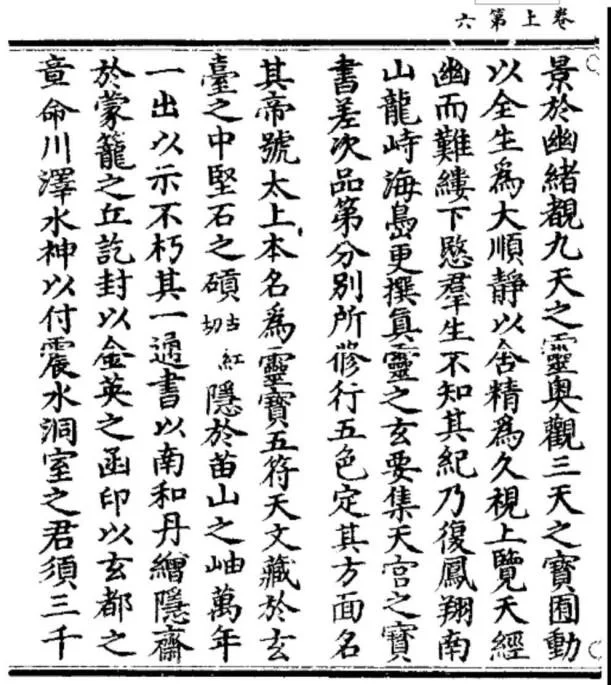 卷上第六
景於幽緒覩九天之靈奥觀三天之寶囿動
以全生爲大順靜以舍精爲久視上覽天經
幽而難縷下愍羣生不知其紀乃復鳳翔南
山龍峙海島更撰眞靈之玄要集天宫之寶
書差次品第分别所修行五色定其方面名
其帝號太上本名爲靈寶五符天文藏於玄
臺之中堅石之碽古紅切隱於苗山之岫萬年
一出以示不朽其一通書以南和丹繒隱齋
於蒙籠之丘訖封以金英之函印以玄都之
章命川澤水神以付震水洞室之君須三千